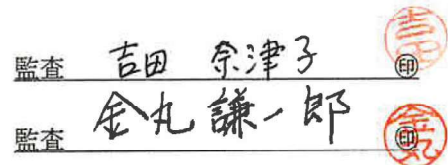 監査 吉田 奈津子 ㊞ 吉田
監査 金丸 謙一郎 ㊞ 金丸